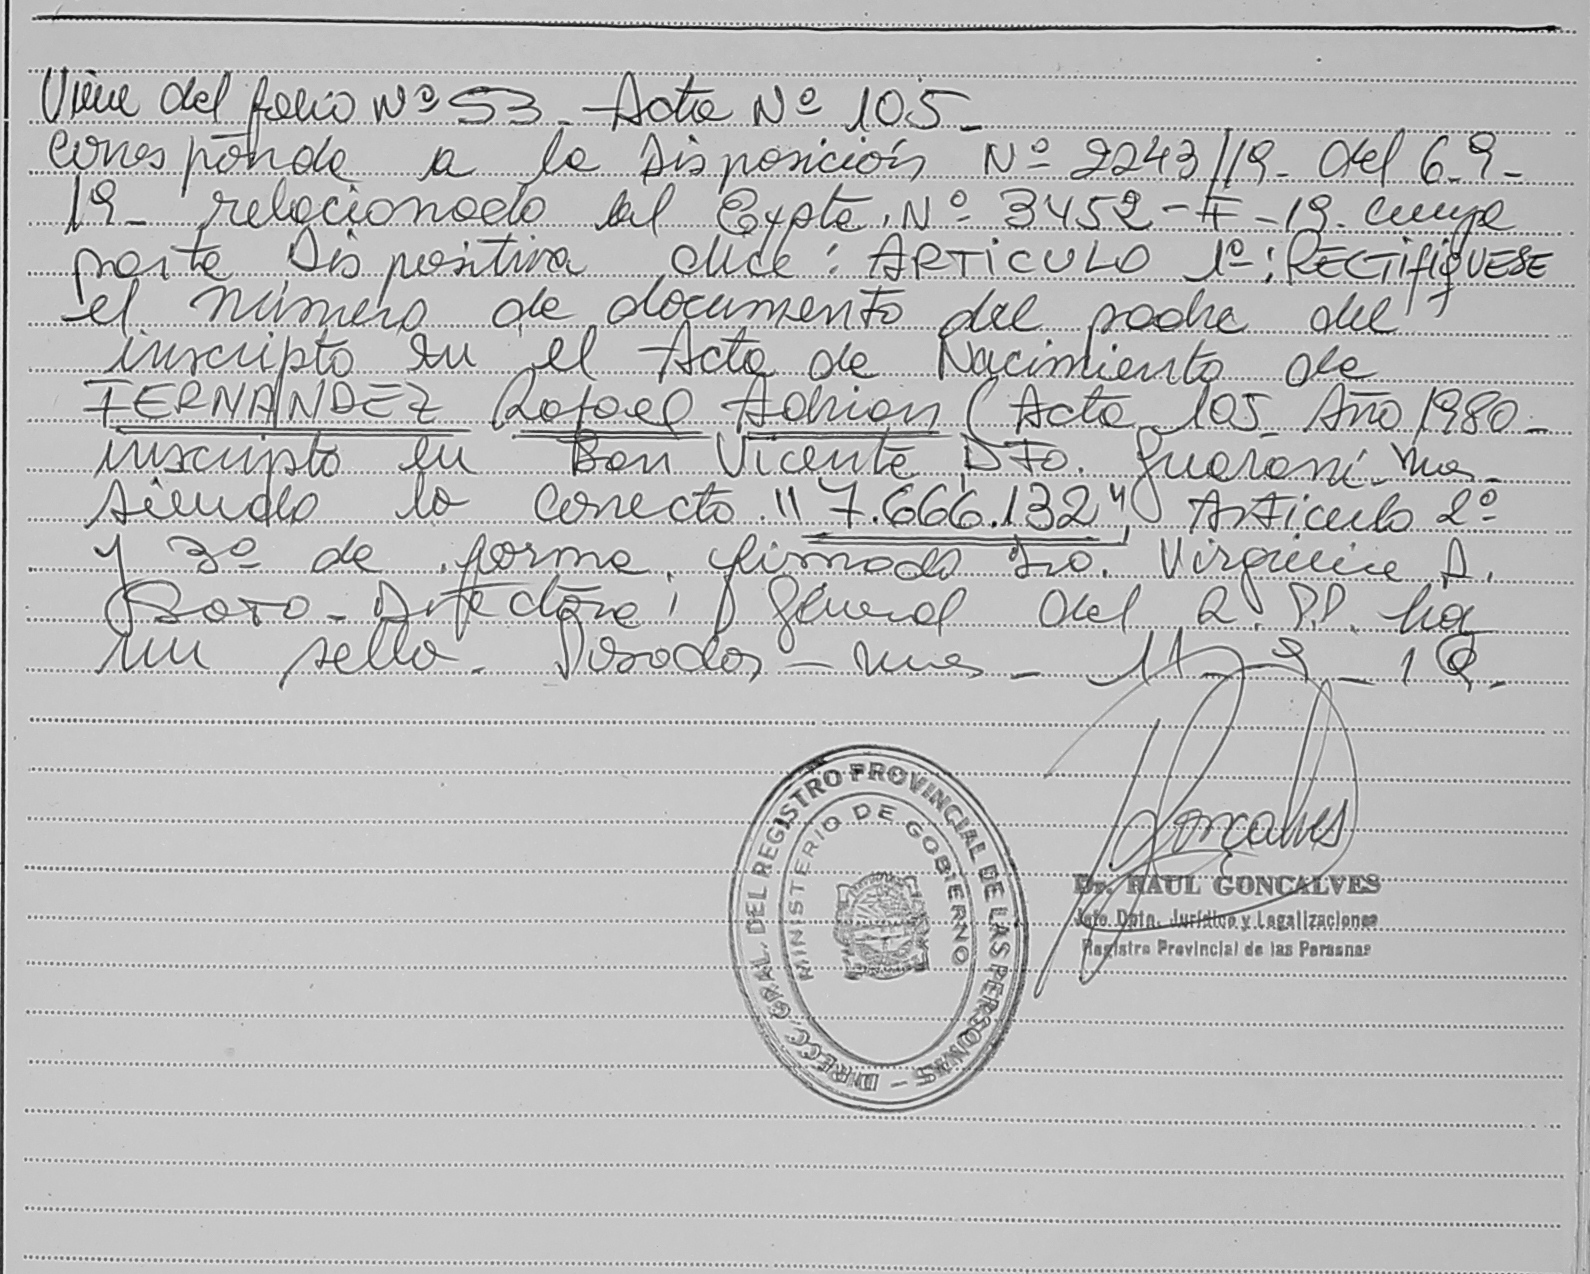 Viene del folio Nº 53 - Acta Nº 105 -
Corresponde a la Disposición Nº 2243/19 - del 6-9-
19 - relacionado al Expte. Nº 3452 - F - 19 - cuya
parte Dispositiva dice: ARTICULO 1º: RECTIFIQUESE
el número de documento del padre del
inscripto en el Acta de Nacimiento de
FERNANDEZ Rafael Adrian (Acta 105 - Año 1980 -
inscripto en Bon Vicente Dto. Guaraní - Mnes -
siendo lo correcto "7.666.132" Articulo 2º
y 3º de forma, firmado Dra. Virginia A.
Directora General del R.P.P. hay
un sello - Posadas - Mnes - 11 - 9 - 19 -
DIRECC. GRAL. DEL REGISTRO PROVINCIAL DE LAS PERSONAS -
MINISTERIO DE GOBIERNO
Goncalves
Dr. RAUL GONCALVES
Jefe Dpto. Jurídico y Legalizaciones
Registro Provincial de las Personas